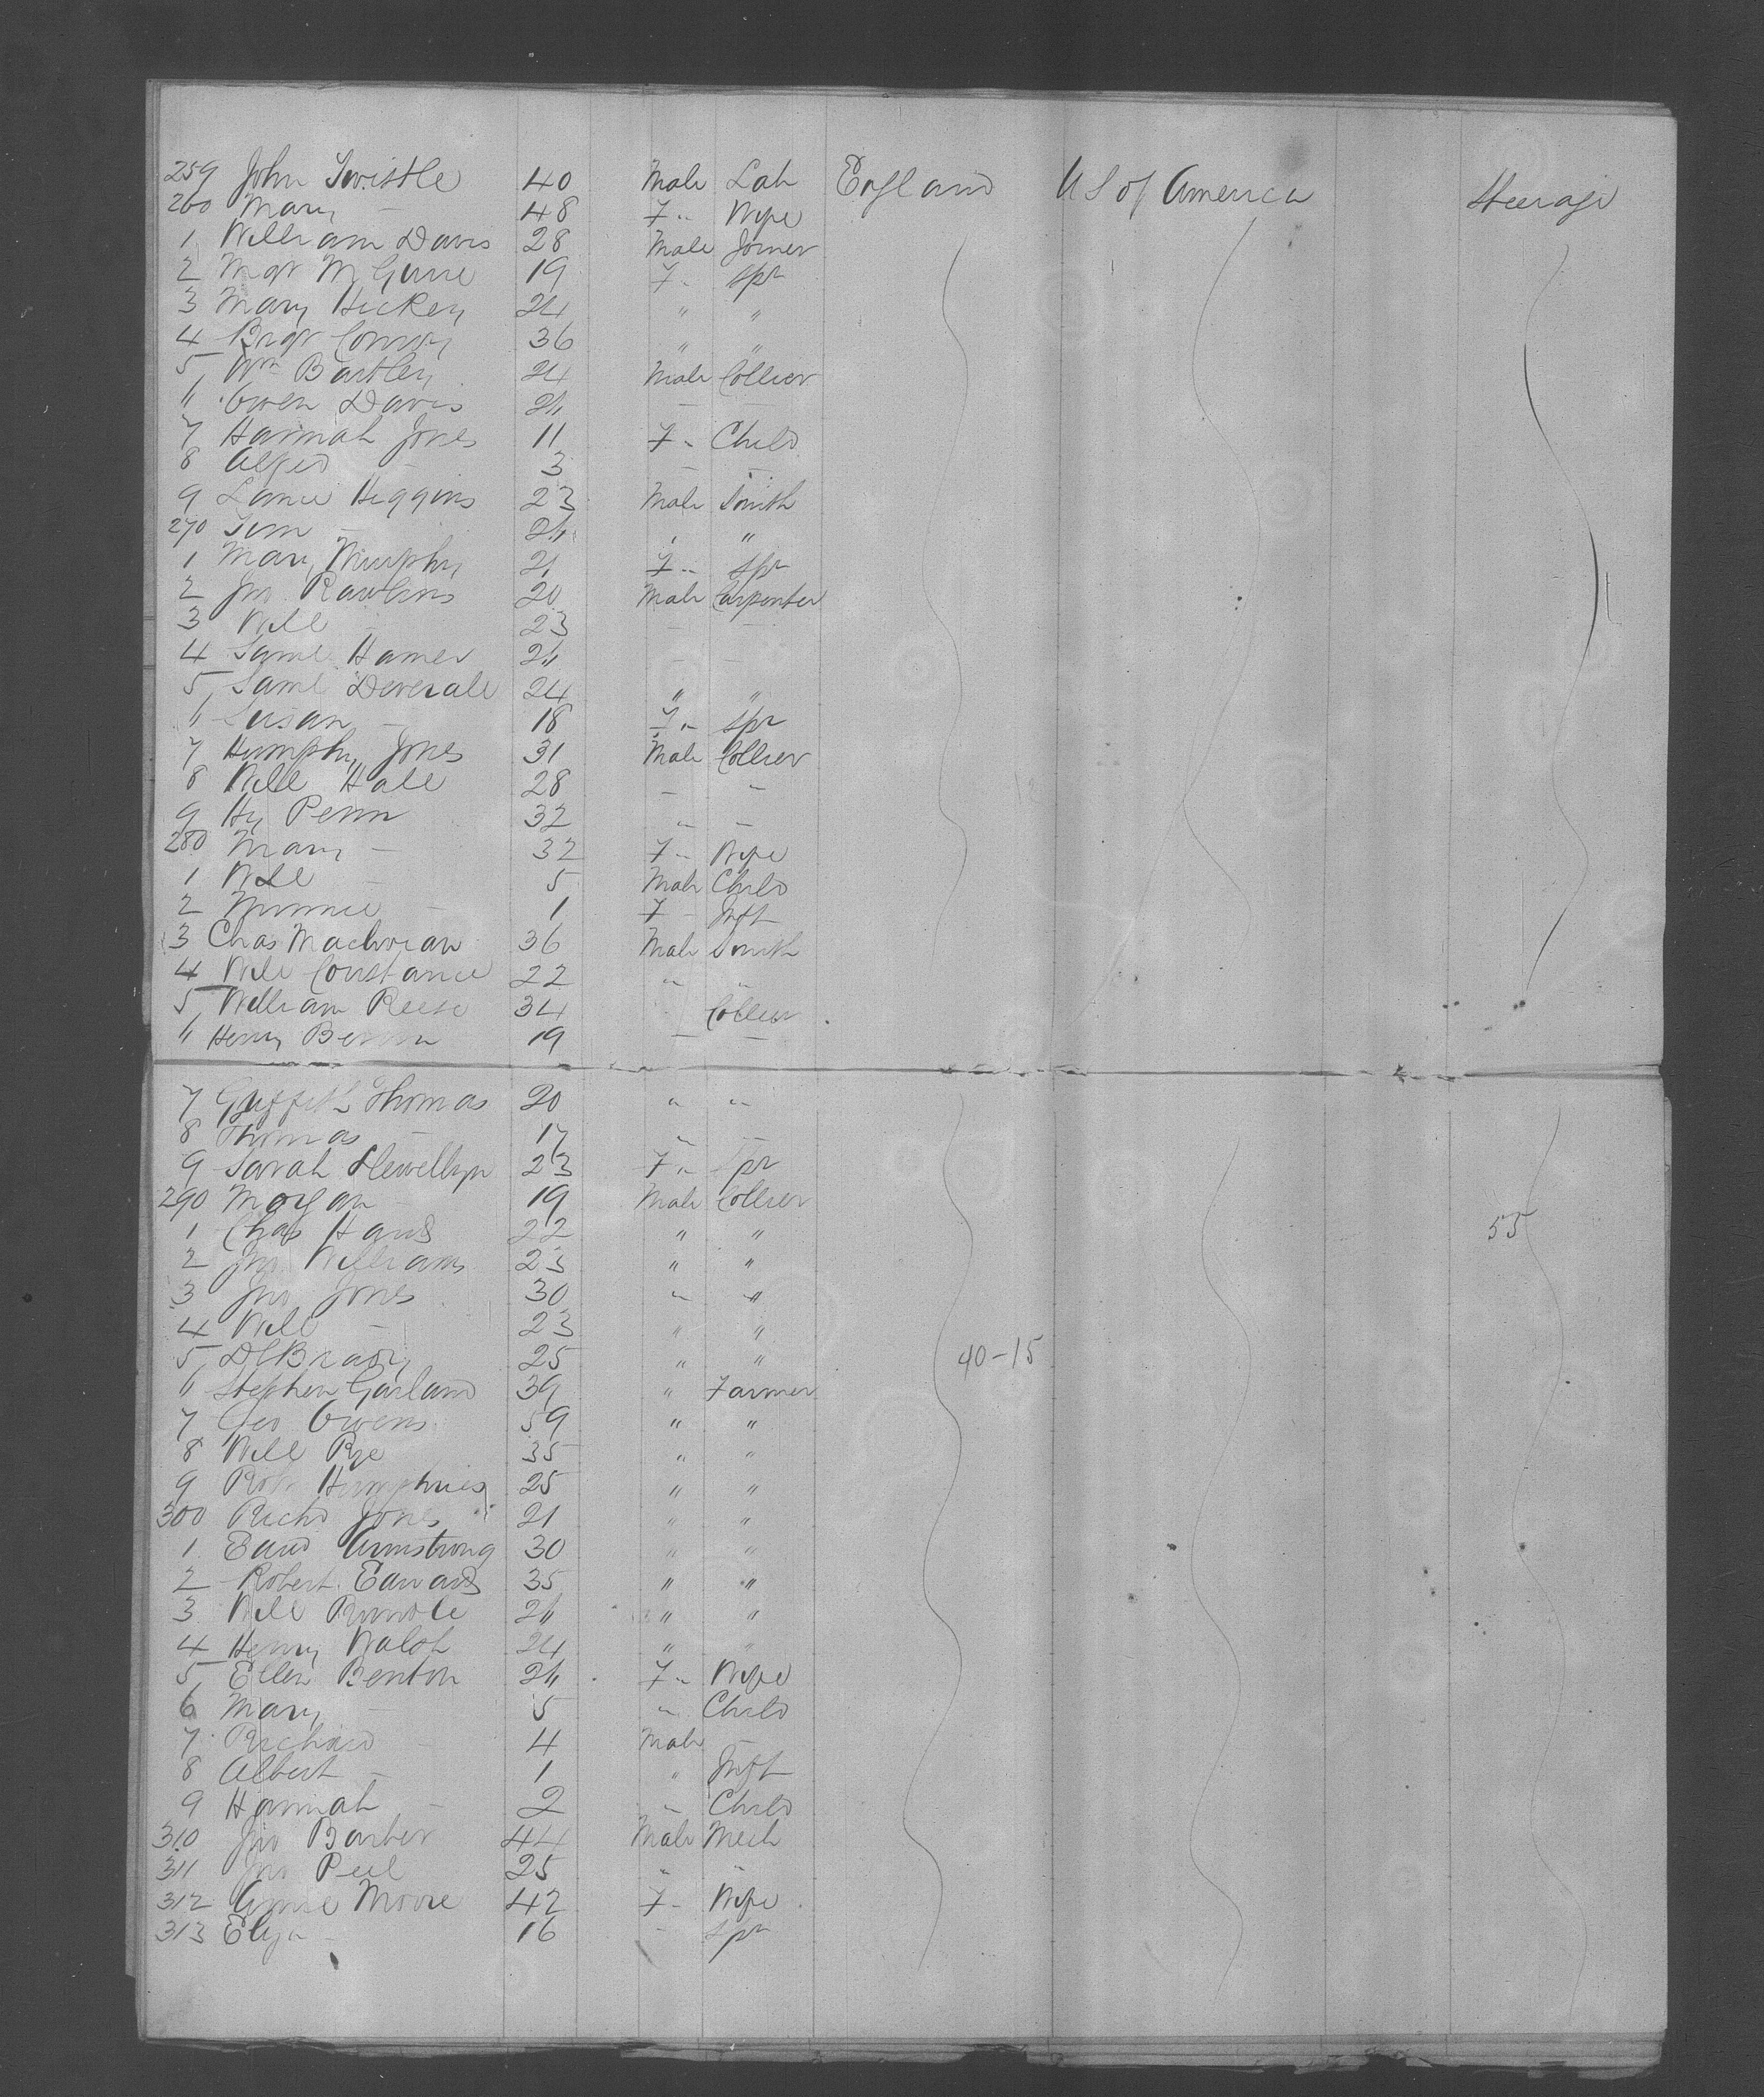 259 John Twistle 40 Male Lab England US of America Steerage
260 Mary — 48 F " Wife
1 William Davis 28 Male Joiner
2 Mgt McGuire 19 F " Spr
3 Mary Hickey 24 " "
4 Brgt Conroy 36 " "
5 Wm Bartley 24 Male Collier
" Owen Davis 2" — —
7 Hannah Jones 11 F " Child
8 Alfred — 3 — —
9 Higgins 23 Male Smith
270 — 2" " "
1 Mary Murphy 21 F " Spr
2 Jno Rawlins 20 Male Carpenter
3 Will — 23 — —
4 Saml Hamer 2" — —
5 Saml Deverale 24 " "
" Susan — 18 F " Spr
7 Humphy Jones 31 Male Collier
8 Will Hall 28 — —
9 Hy Penn 32 " —
280 Mary — 32 F " Wife
1 Will — 5 Male Child
2 Minnie — 1 F — Inft
3 Chas 36 Male Smith
4 Will Constance 22 " "
5 William Reese 34 Collier
" Henry 19 — —
7 Griffith Thomas 20 " "
8 Thomas — 17 " —
9 Sarah Llewellyn 23 F " Spr
290 Morgan — 19 Male Collier
1 Chas 22 " " 55
2 Jno Williams 23 " "
3 Jno Jones 30 " "
4 Will — 23 " "
5 25 " " 40-15
" Stephen Garland 39 " Farmer
7 Geo Owens 59 " "
8 Will Rye 35 " "
9 Robt Humphries 25 " "
300 Richd Jones 21 " "
1 Edwd Armstrong 30 " "
2 Robert Edwards 35 " "
3 Will 2" " "
4 Henry Walsh 24 " "
5 Ellen Benton 2" F " Wife
6 Mary — 5 " Child
7 Richard — 4 Male —
8 Albert — 1 " Inft
9 Hannah — 2 " Child
310 Jno Barber 44 Male Mech
311 Jno Peel 25 " "
312 Annie Moore 42 F — Wife
313 Eliza — 16 — Spr